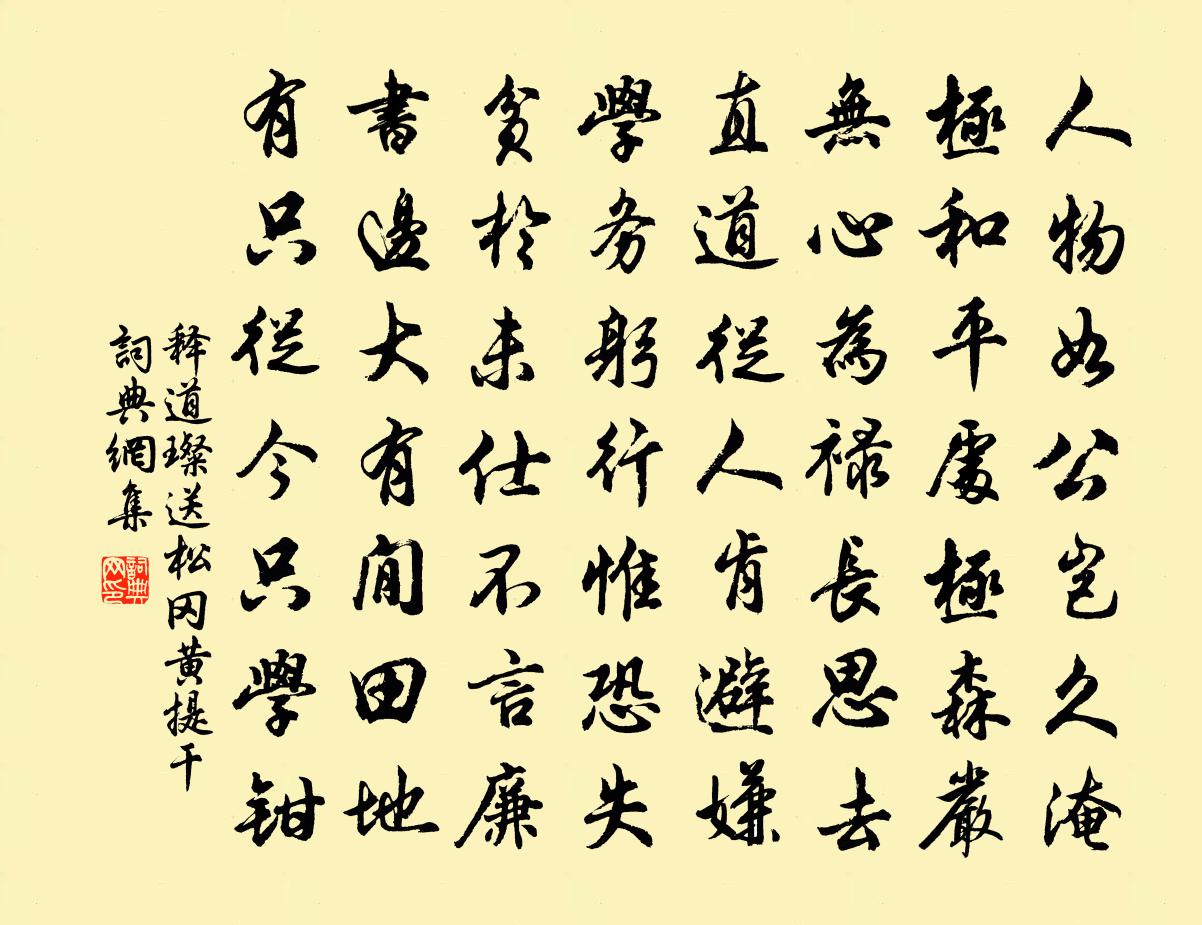 人物如公岂久淹
極和平處極森嚴
無心為禄長思去
直道從人肯避嫌
學务躬行惟恐失
貧於未仕不言廉
書邊大有閒田地
有只從今只學鉗
释道璨送松冈黄提干
詞典網集
詞典网印